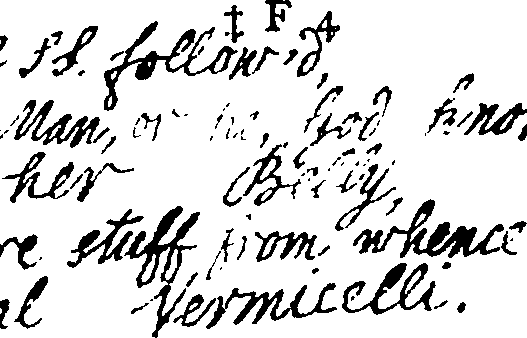 ‡ F 4
SS. follow'd,
Man, or no, God know
her Belly,
re stuff from whence
al Vermicelli.